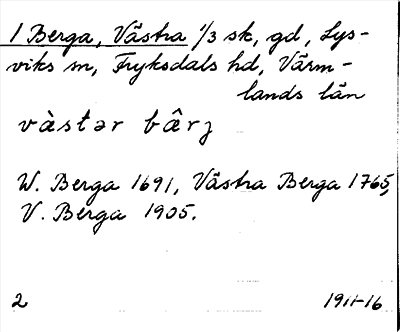 1 Berga, Västra 1/3 sk, gd, Lys-
viks sn, Fryksdals hd, Värm-
lands län
vàstər bârj
W. Berga 1691, Västra Berga 1765,
V. Berga 1905.
2 1911-16